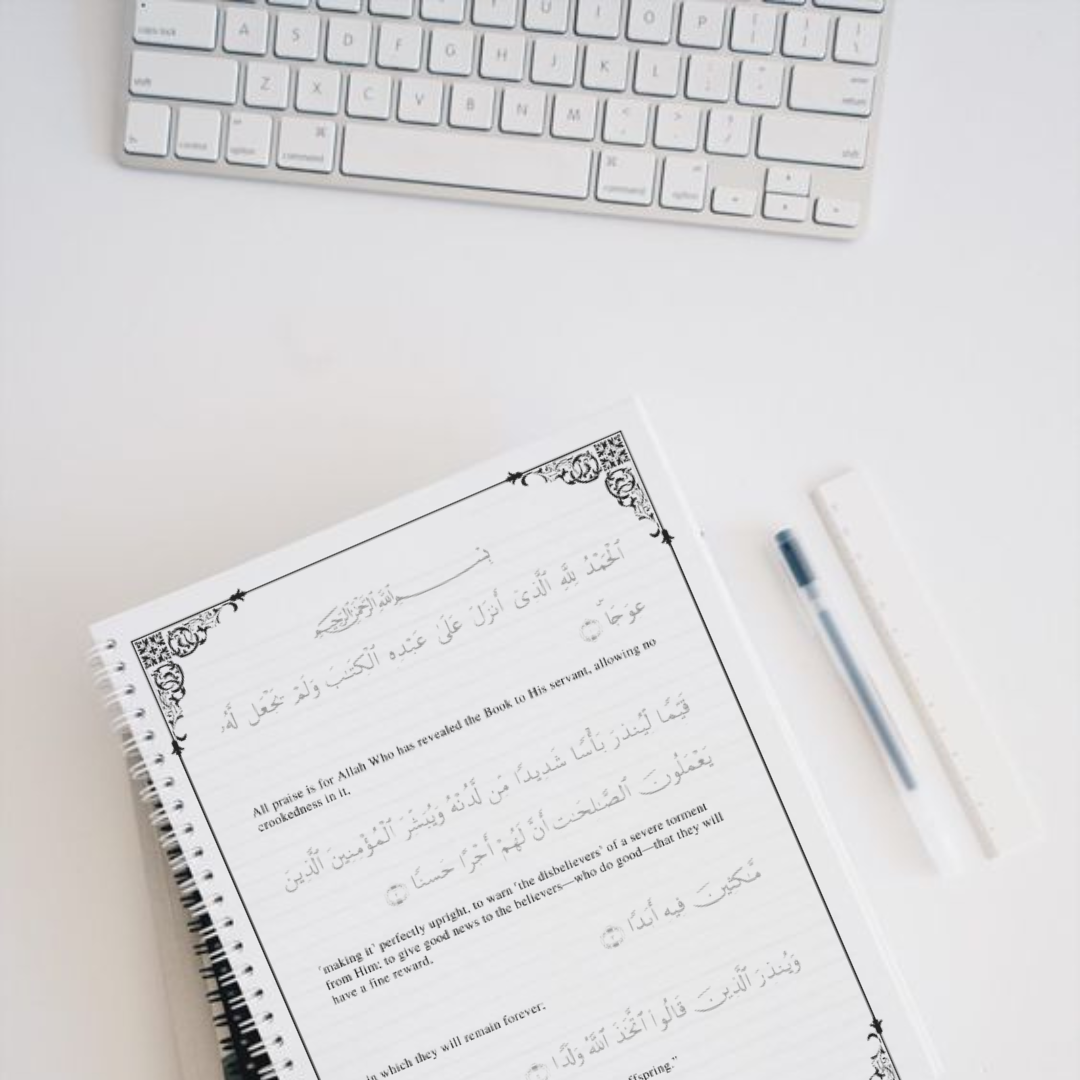 caps lock A S D F G H J K L : ; " ' enter return
shift Z X C V B N M < , > . ? / shift
fn control alt option ⌘ command ⌘ command alt option
U I O P { [ } ] | \
بِسْمِ ٱللَّهِ ٱلرَّحْمَٰنِ ٱلرَّحِيمِ
ٱلْحَمْدُ لِلَّهِ ٱلَّذِىٓ أَنزَلَ عَلَىٰ عَبْدِهِ ٱلْكِتَٰبَ وَلَمْ يَجْعَل لَّهُۥ
عِوَجَاۜ
All praise is for Allah Who has revealed the Book to His servant, allowing no
crookedness in it,
قَيِّمًا لِّيُنذِرَ بَأْسًا شَدِيدًا مِّن لَّدُنْهُ وَيُبَشِّرَ ٱلْمُؤْمِنِينَ ٱلَّذِينَ
يَعْمَلُونَ ٱلصَّٰلِحَٰتِ أَنَّ لَهُمْ أَجْرًا حَسَنًا
˹making it˺ perfectly upright, to warn ˹the disbelievers˺ of a severe torment
from Him; to give good news to the believers—who do good—that they will
have a fine reward,
مَّٰكِثِينَ فِيهِ أَبَدًا
in which they will remain forever;
وَيُنذِرَ ٱلَّذِينَ قَالُوا۟ ٱتَّخَذَ ٱللَّهُ وَلَدًا
ffspring."